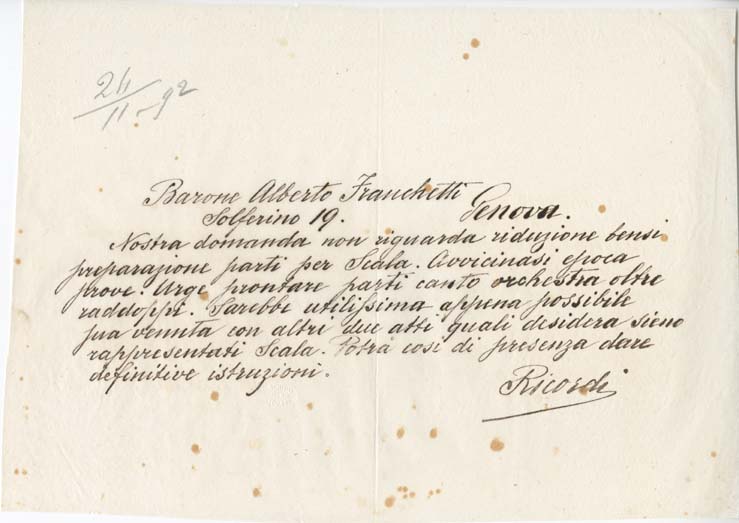 24/11-92
Barone Alberto Franchetti
Solferino 19. Genova.
Nostra domanda non riguarda riduzione bensì
preparazione parti per Scala. Avvicinasi epoca
prove. Urge prontare parti canto orchestra oltre
raddoppi. Sarebbe utilissima appena possibile
sua venuta con altri due atti quali desidera sieno
rappresentati Scala. Potrà così di presenza dare
definitive istruzioni.
Ricordi